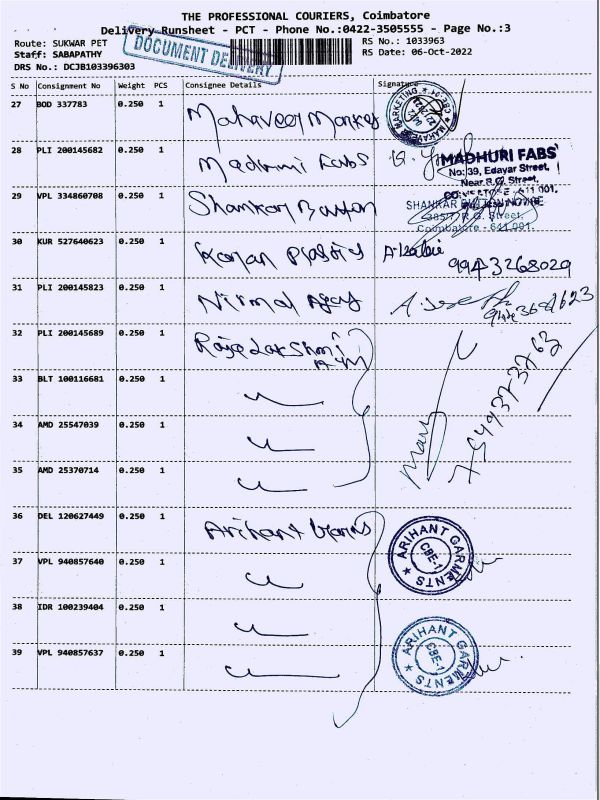 THE PROFESSIONAL COURIERS, Coimbatore
Delivery Runsheet - PCT - Phone No.:0422-3505555 - Page No.:3
Route: SUKWAR PET RS No.: 1033963
Staff: SABAPATHY RS Date: 06-Oct-2022
DRS No.: DCJB103396303
DOCUMENT DELIVERY
S No Consignment No Weight PCS Consignee Details Signature
27 BOD 337783 0.250 1 Mahaveer
MAHAVEER MARKETING
28 PLI 200145682 0.250 1 Fabs
MADHURI FABS
No: 39, Edayar Street,
Near R.G. Street,
29 VPL 334860708 0.250 1 Shankar Button
SHANKAR
R.G. Street,
Coimbatore - 641 001.
30 KUR 527640623 0.250 1 Plastics
9943268029
31 PLI 200145823 0.250 1 Nirmal
32 PLI 200145689 0.250 1 Rajalakshmi
33 BLT 100116681 0.250 1
34 AMD 25547039 0.250 1
35 AMD 25370714 0.250 1
36 DEL 120627449 0.250 1 Arihant
ARIHANT GARMENTS
CBE-1
37 VPL 940857640 0.250 1
38 IDR 100239404 0.250 1
ARIHANT GARMENTS
CBE-1
39 VPL 940857637 0.250 1